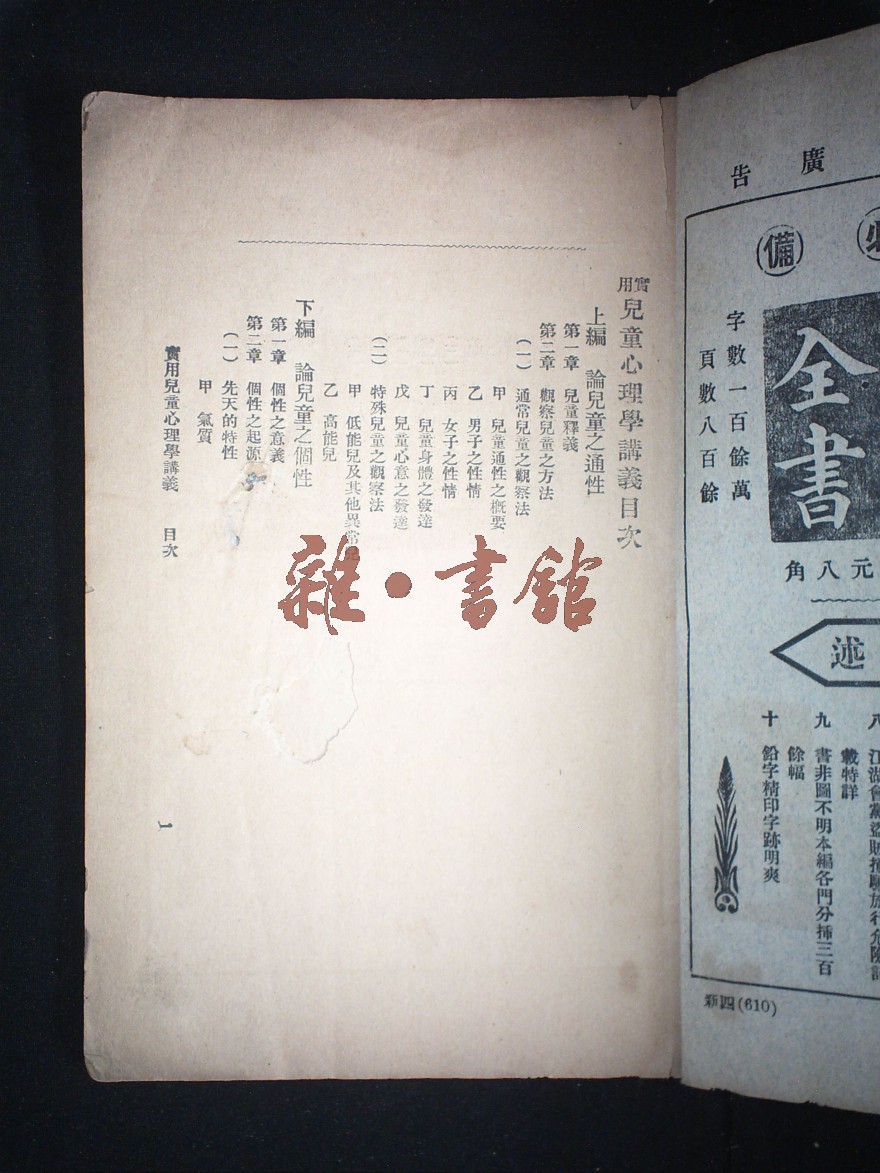 廣告
備
全書
字數一百餘萬
頁數八百餘
元八角
述
八 江湖會黨
載特詳
九 書非圖不明本編各門分插三百
餘幅
十 鉛字精印字跡明爽
新四(610)
實用兒童心理學講義目次
上編 論兒童之通性
第一章 兒童釋義
第二章 觀察兒童之方法
(一) 通常兒童之觀察法
甲 兒童通性之概要
乙 男子之性情
丙 女子之性情
丁 兒童身體之發達
戊 兒童心意之發達
(二) 特殊兒童之觀察法
甲 低能兒及其他異常兒
乙 高能兒
下編 論兒童之個性
第一章 個性之意義
第二章 個性之起源
(一) 先天的特性
甲 氣質
實用兒童心理學講義 目次
1
雜·書館